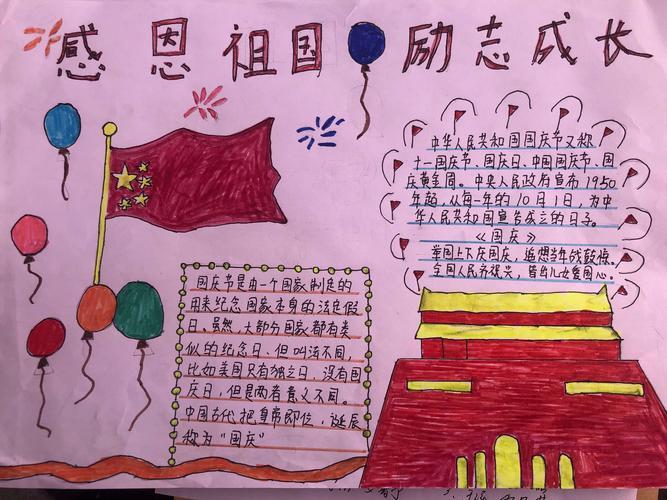 感恩祖国 励志成长
中华人民共和国国庆节又称
十一国庆节、国庆日、中国国庆节、国
庆黄金周。中央人民政府宣布1950
年起，从每一年的10月1日，为中
华人民共和国宣告成立的日子。
《国庆》
举国上下庆国庆，追想当年战鼓惊。
全国人民齐祝兴，皆与儿女爱国心。
国庆节是由一个国家制定的
用来纪念国家本身的法定假
日。虽然，大部分国家都有类
似的纪念日，但叫法不同，
比如美国只有独立日，没有国
庆日，但是两者意义不同。
中国古代把皇帝即位、诞辰
称为“国庆”